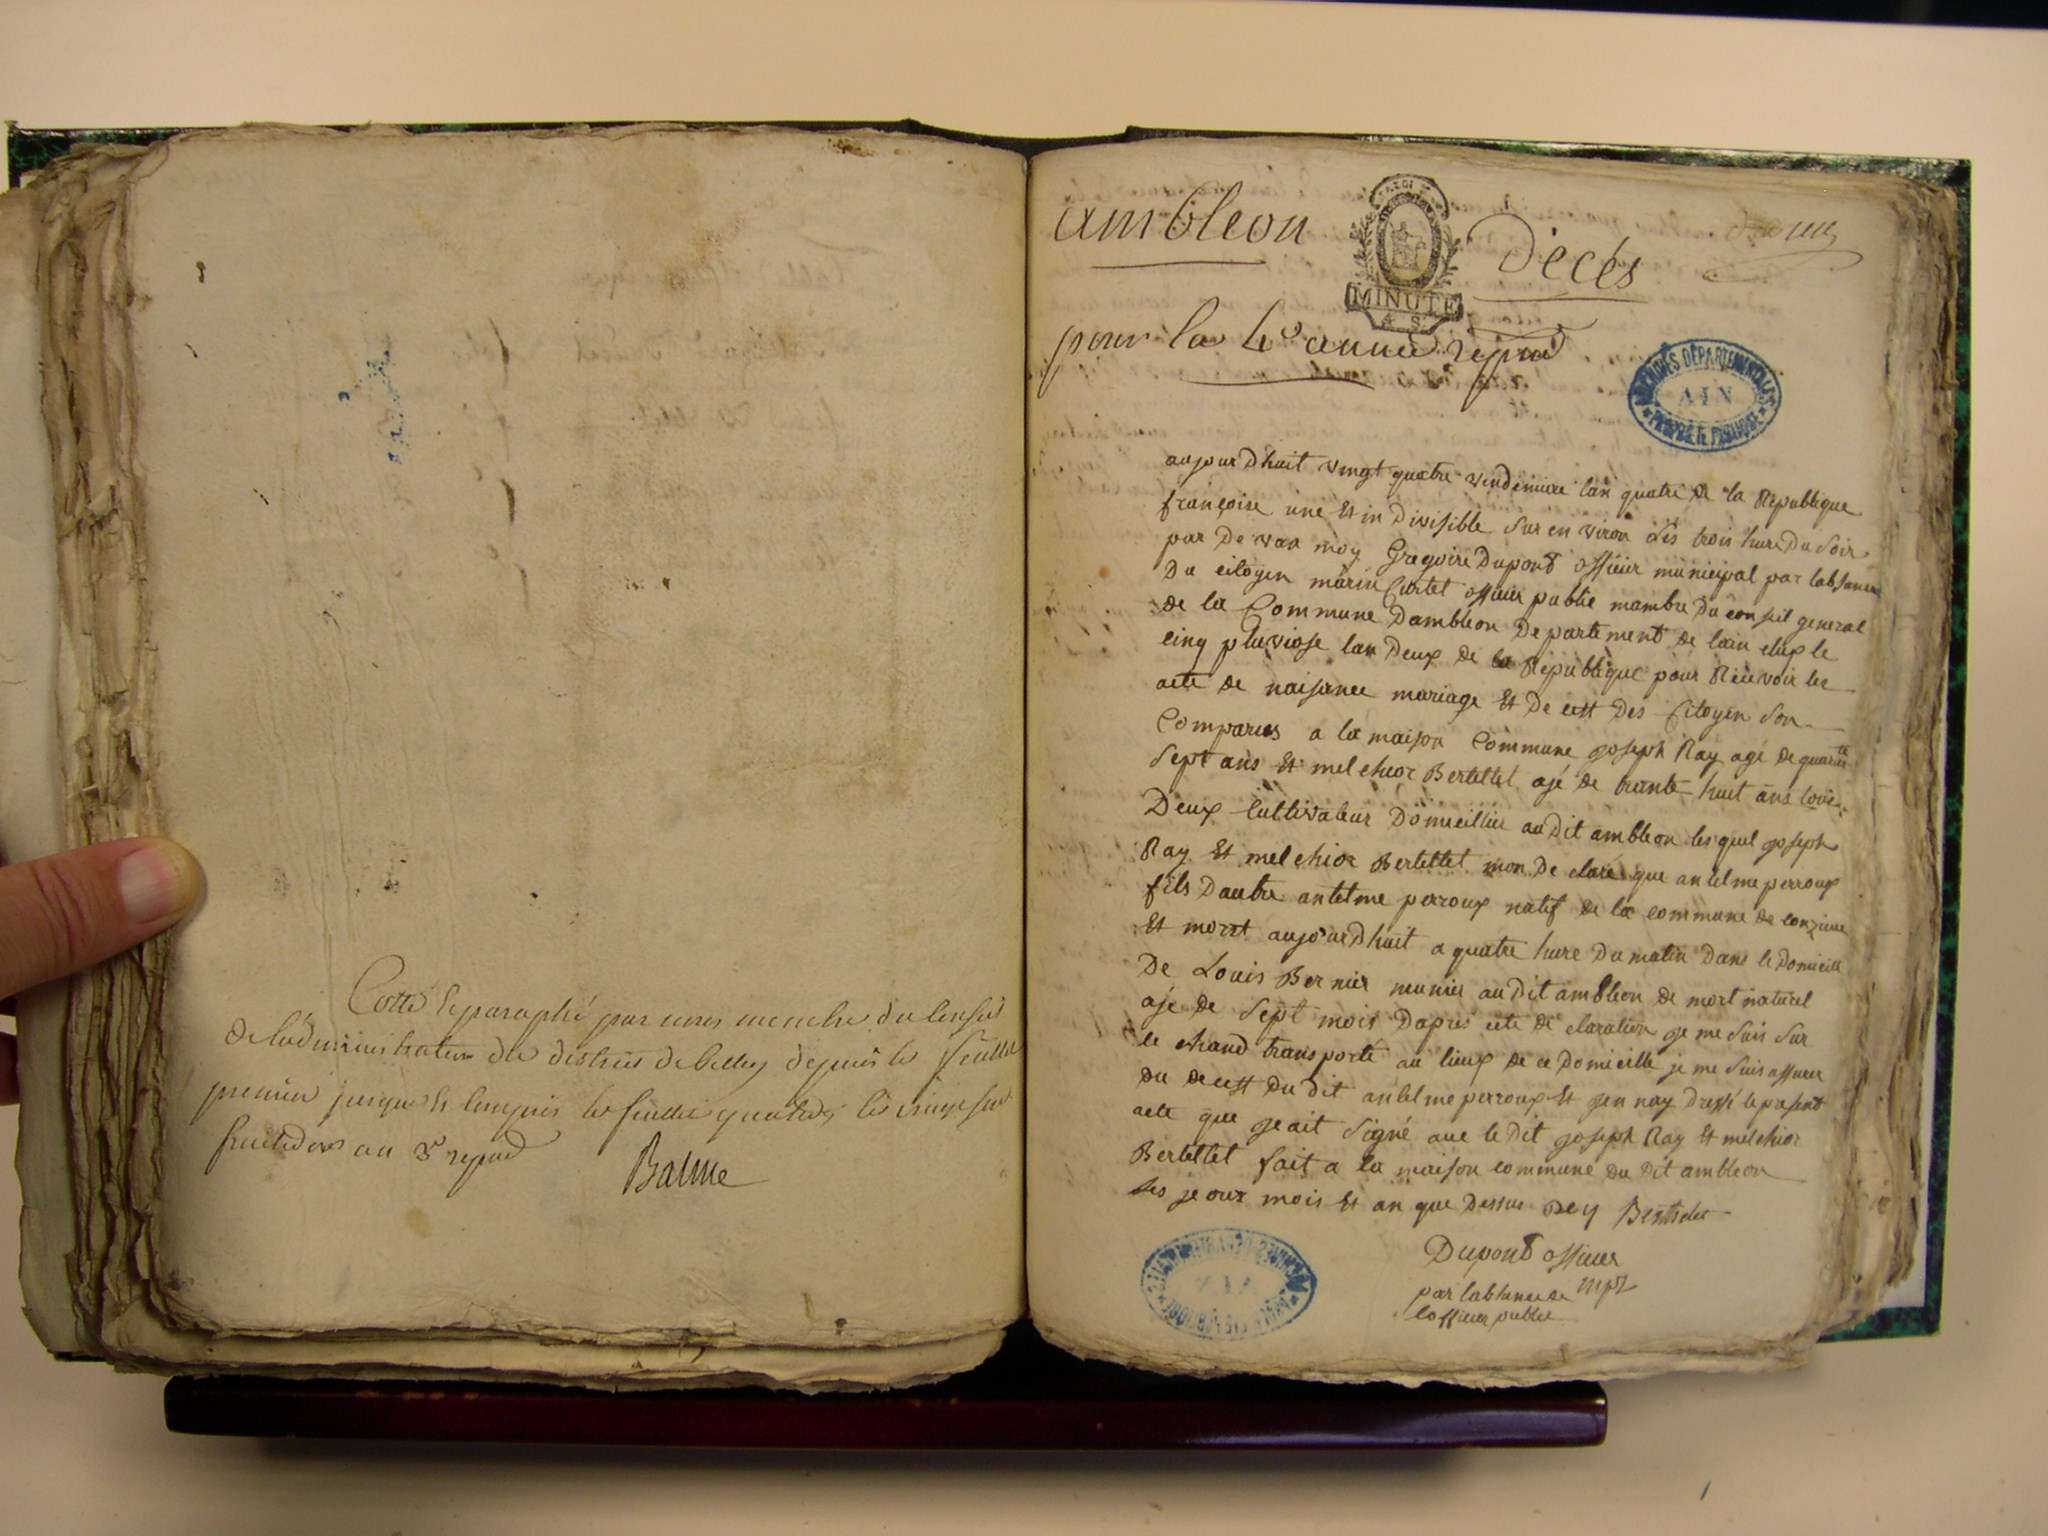 Cotté & paraphé par nous membre du Conseil
de l'administration du district de belley depuis le feuillet
premier jusques & compris le feuillet quatre, le vingt six
fructidor an 3e repud
Balme
ambleon
Décés
MINUTE
4 S
pour la 4e année repud
ARCHIVES DÉPARTEMENTALES
AIN
PROPRIÉTÉ PUBLIQUE
aujourdhuit vingt quatre vindemiere lan quatre de la Republique
françoise une Et in Divisible Sur en viron Lés trois hure Du Soir
par De van moy Gregoire Dupont officier municipal par labsance
Du citoyen marin Curtet officier public mambre Du conseil general
de la Commune Dambleon Departement de lain elup le
cinq pluviose lan Deux de la Republique pour Recevoir les
acte de naisance mariage Et De cest Des Citoyen Son
Comparus a la maison Commune joseph Ray age de quarante
Sept ans Et melchior Bertettet ajé de trante huit ans tous
Deux Cultivateur Domicillier au Dit ambleon lesquel joseph
Ray Et melchior Bertettet mon De claré que antelme perroux
fils Dautre antelme perroux natif de la commune de conzieux
Et mort aujourdhuit a quatre hure Du matin Dans le Domicille
De Louis Bernier munier au Dit ambleon de mort naturel
aje de Sept mois Daprés cete de claration je me Suis Sur
le chand transporté au lieux de ce Domicille je me Suis assurer
du decest du dit antelme perroux Et jen nay Dressé le present
acte que je ait Signé avec le Dit joseph Ray Et melchior
Bertettet fait a la maison commune du Dit ambleon
les jeour mois Et an que Dessus Rey Bertetet
Dupont officier
mpl
par labsance de
lofficier public
ARCHIVES DÉPARTEMENTALES
AIN
PROPRIÉTÉ PUBLIQUE